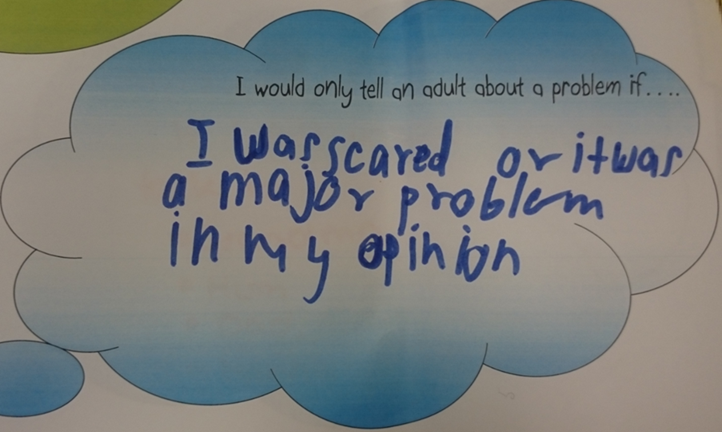 I would only tell an adult about a problem if....
I was scared or it was
a major problem
in my opinion